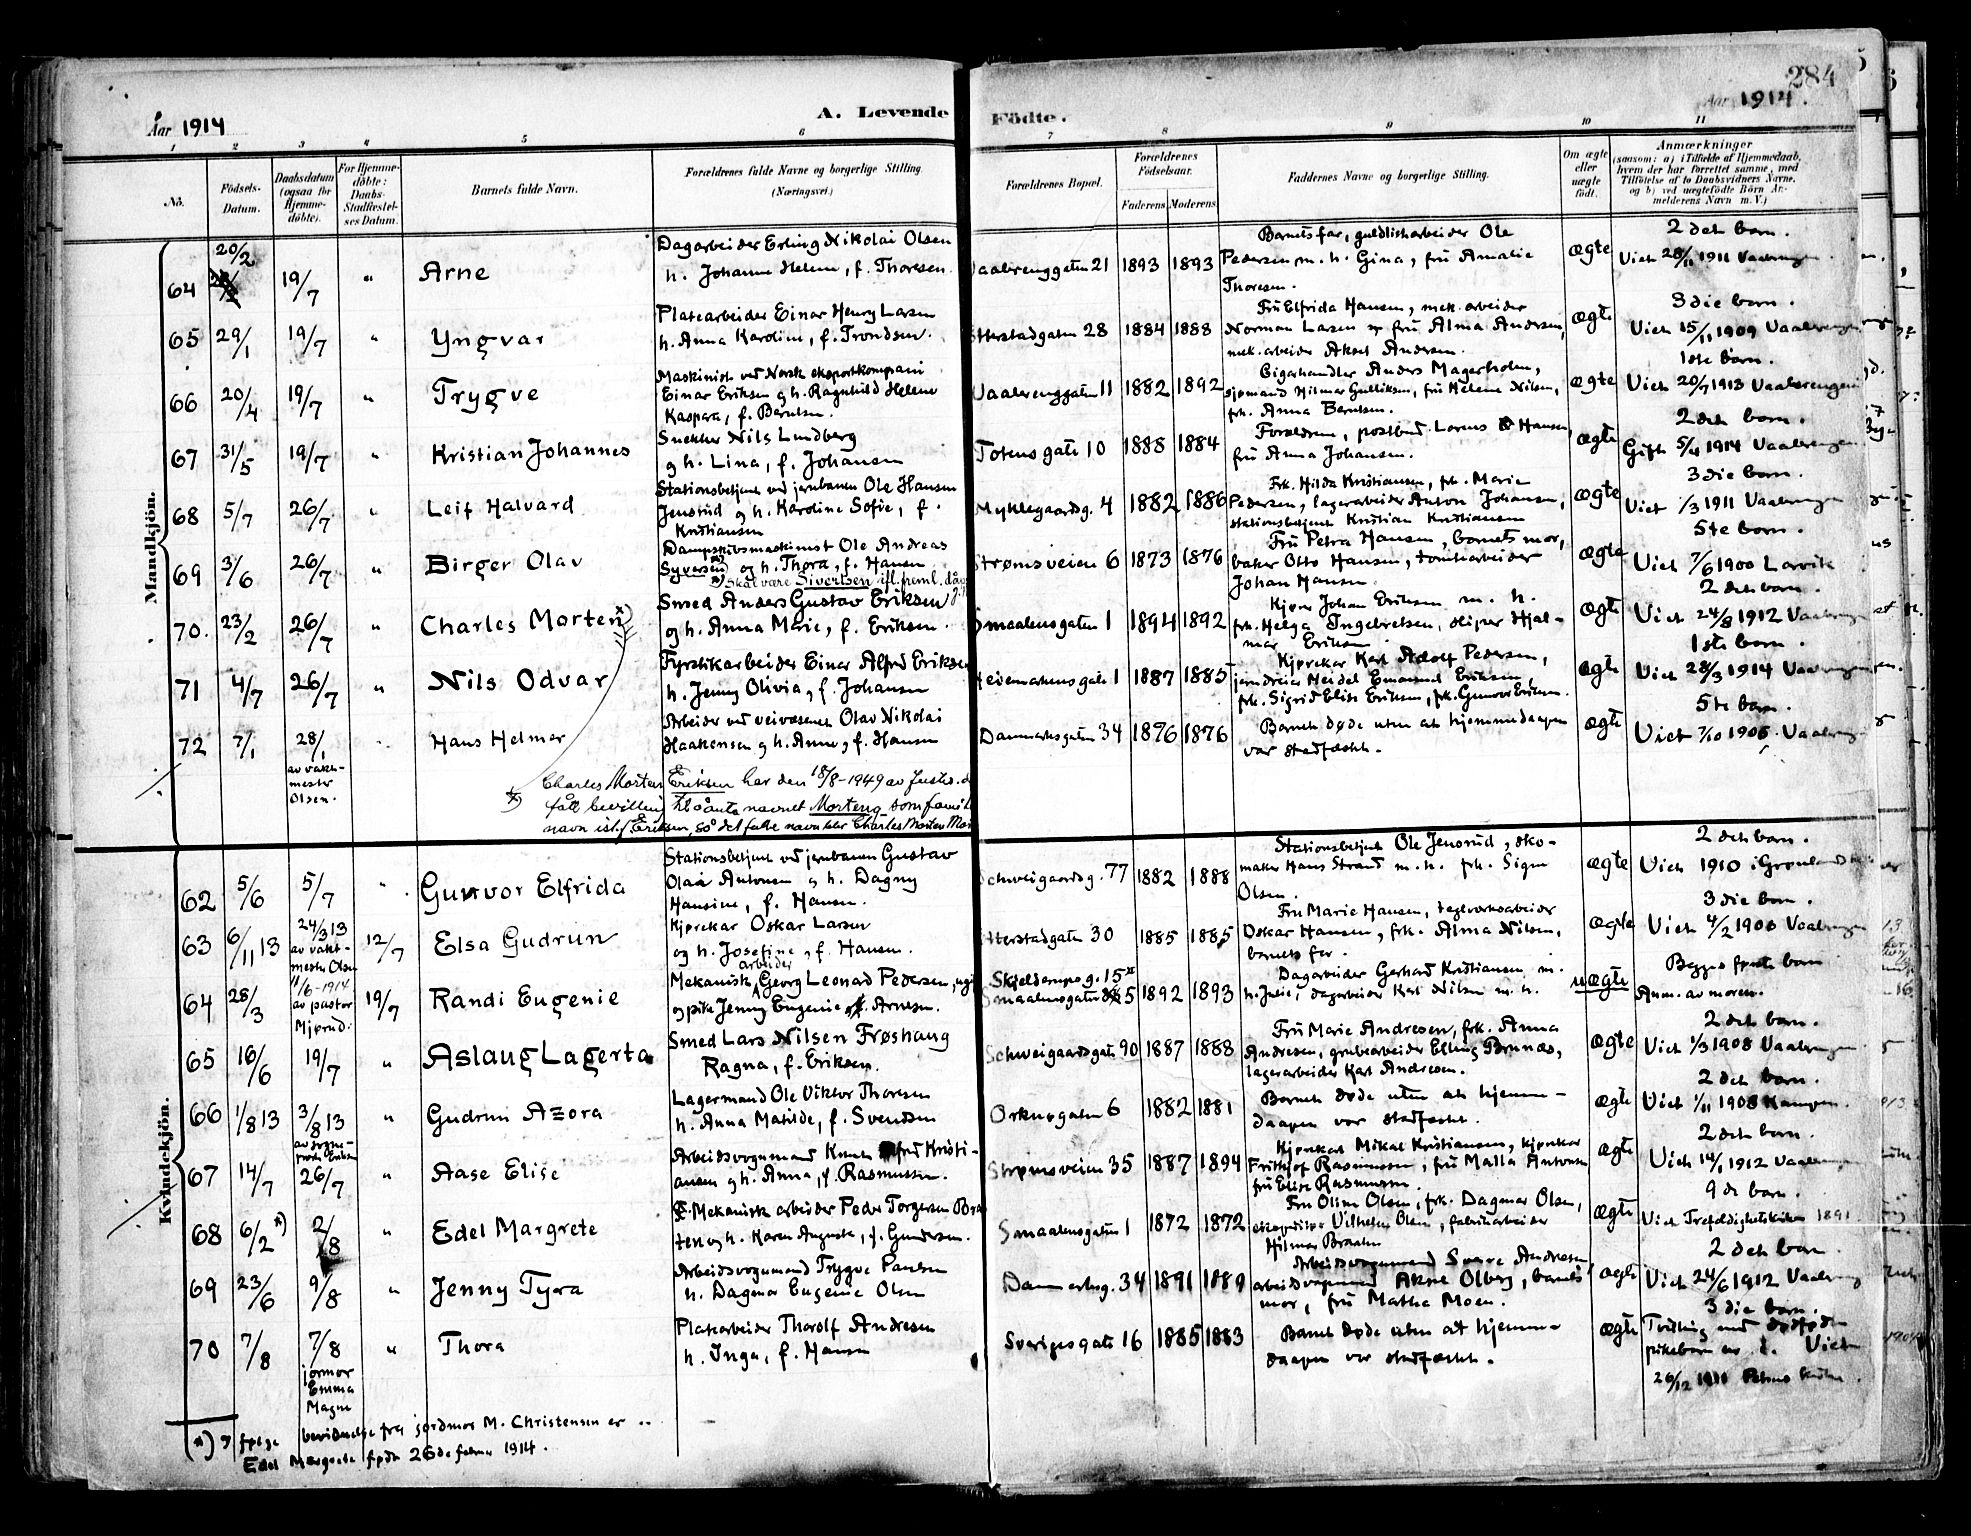 284
Aar 1914
A. Levende
Födte.
Aar 1914.
1 2 3 4 5 6 7 8 9 10 11
No.
Födsels-Datum.
Daabsdatum (ogsaa for Hjemme-döbte).
For Hjemme-döbte: Daabs-Stadfæstel-ses Datum.
Barnets fulde Navn.
Forældrenes fulde Navne og borgerlige Stilling (Næringsvei.)
Forældrenes Bopæl.
Forældrenes Födselsaar.
Faderens. Moderens.
Faddernes Navne og borgerlige Stilling.
Om ægte eller uægte födt.
Anmærkninger
(saasom: a) i Tilfælde af Hjemmedaab,
hvem der har forrettet samme, med
Tilföielse af to Daabsvidners Navne,
og b) ved uegtefödte Börn An-
melderens Navn m. V.)
Mandkjön.
64 20/2 19/7 " Arne
Dagarbeider Erling Nikolai Olsen
h. Johanne Helene, f. Thoresen.
21 1893 1893
Barnets far, guldlistarbeider Ole
Pedersen m. h. Gina, frü Amalie
Thoresen.
ægte
2 det barn.
Viet 28/11 1911 Vaalerengen.
65 29/1 19/7 " Yngvar
Platearbeider Einar Henry Larsen
h. Anna Karoline, f. Trondsen.
Etterstadgaten 28 1884 1888
Frü Elfrida Hansen, mek. arbeider
Norman Larsen og frü Alma Andersen,
mek. arbeider Aksel Andersen.
ægte
3 die barn.
Viet 15/11 1909 Vaalerengen
66 20/4 19/7 " Trygve
Maskinist ved Norsk eksportkompani
Einar Eriksen og h. Ragnhild Helene
Kaspara, f. Berntsen.
Vaalerenggaten 11 1882 1892
Cigarhandler Anders Magerholm,
sjømand Hilmar Gulliksen, frü Helene Nilsen,
frk. Anna Berntsen.
ægte
1ste barn.
Viet 20/7 1913 Vaalerengen
67 31/5 19/7 " Kristian Johannes
Snekker Nils Lundberg
og h. Lina, f. Johansen
Totensgate 10 1888 1884
Forældrene, postbud Lorens Hansen,
frü Anna Johansen.
ægte
2 det barn.
Gift 5/4 1914 Vaalerengen
68 5/7 26/7 " Leif Halvard
Stationsbetjent ved jernbanen Ole Hansen
Jensrud og h. Karoline Sofie, f.
Kristiansen
Myklegaardsg. 4 1882 1886
Frk. Hilda Kristiansen, frk. Marie
Pedersen, lagerarbeider Anton Johansen,
stationsbetjent Kristian Kristiansen
ægte
3 die barn.
Viet 1/3 1911 Vaalerengen
69 3/6 26/7 " Birger Olav
Dampskibsmaskinist Ole Andreas
Syversen og h. Thora, f. Hansen
x) skal være Sivertsen ifl. freml. dåps
Strømsveien 6 1873 1876
Frü Petra Hansen, barnets mor,
baker Otto Hansen, tomtearbeider
Johan Hansen.
ægte
5te barn.
Viet 7/6 1900 Larvik
70. 23/2 26/7 " Charles Morten x)
Smed Anders Gustav Eriksen
og h. Anna Marie, f. Eriksen.
Smaalensgaten 1 1894 1892
Kjører Johan Eriksen m. h.
frk. Helga Ingebretsen, sliper Hjal-
mar Eriksen
ægte
2 det barn.
Viet 24/8 1912 Vaalerengen
71 4/7 26/7 " Nils Odvar
Fyrstikarbeider Einar Alfred Eriksen
h. Jenny Olivia, f. Johansen
Hedemarkensgate 1 1887 1885
Kjørekar Karl Adolf Pedersen,
jerndreier Heidel Emanuel Eriksen,
frk. Sigrid Elise Eriksen, frk. Gunvor Eriksen.
ægte
1ste barn.
Viet 28/3 1914 Vaalerengen
72 7/1 28/1 Hans Helmer
av vakt-
mester
Olsen.
Arbeider ved veivæsenet Olav Nikolai
Haakensen og h. Anne, f. Hansen
Danmarksgaten 34 1876 1876
Barnet døde uten at hjemmedaapen
var stadfæstet.
ægte
5te barn.
Viet 7/10 1906 Vaalereng
x) Charles Morten Eriksen har den 18/8-1949 av Justis.d.
fått bevilling til å anta navnet Morteng som famil
navn ist.f. Eriksen, så det fulle navn blir Charles Morten Mor
Kvindekjön.
62 5/6 5/7 " Gunvor Elfrida
Stationsbetjent ved jernbanen Gustav
Olai Antonsen og h. Dagny
Hansine, f. Hansen.
Schweigaardsg. 77 1882 1888
Stationsbetjent Ole Jensrud, sko-
maker Hans Strand m. h. frk. Signe
Olsen.
ægte
2 det barn.
Viet 1910 i Grønland
63 6/11 13 24/3 13 12/7 Elsa Gudrun
av vakt-
mester Olsen
Kjørekar Oskar Larsen
og h. Josefine, f. Hansen.
Etterstadgaten 30 1885 1885
Frü Marie Hansen, teglverksarbeider
Oskar Hansen, frk. Alma Nilsen,
barnets far.
ægte
3 die barn.
Viet 4/2 1906 Vaalerengen
64 28/3 11/6-1914 19/7 Randi Eugenie
av pastor
Mjørud.
Mekanisk arbeider Georg Leonad Pedersen, ugi
og pike Jenny Eugenie Arnesen.
Skjeldrupsg. 15
Smaalensgaten 5 1892 1893
Dagarbeider Gerhard Kristiansen m.
h. Julie, dagarbeider Karl Nilsen m. h.
uægte
Begges første barn
Anm. av moren.
65 16/6 19/7 " Aslaug Lagerta
Smed Lars Nilsen Frøshaug
Ragna, f. Eriksen.
Schweigaardsgate 90 1887 1888
Frü Marie Andresen, frk. Anna
Andresen, grubearbeider Elling Brunæs,
lagerarbeider Karl Andresen.
ægte
2 det barn.
Viet 1/3 1908 Vaalerengen
66 1/8 13 3/8 13 " Gudrun Azora
av sogne-
prest Eriksen
Lagermand Ole Viktor Thoresen
h. Anna Matilde, f. Svendsen
Orknøgaten 6 1882 1881
Barnet døde uten at hjemme-
daapen var stadfæstet.
ægte
2 det barn.
Viet 1/11 1908 Kampen.
67 14/7 26/7 " Aase Elise
Arbeidsvognmand Knut Alfred Kristi-
ansen og h. Anna, f. Rasmussen.
Strømsveien 35 1887 1894
Kjørekar Mikal Kristiansen, kjørekar
Frithjof Rasmussen, frü Malla Antonsen
frü Elise Rasmussen.
ægte
2 det barn.
Viet 14/1 1912 Vaalerengen
68 6/2 x) 2/8 " Edel Margrete
Mekanisk arbeider Peder Torgersen Bra
ten og h. Karen Auguste, f. Gundersen.
Smaalensgaten 1 1872 1872
Frü Oline Olsen, frk. Dagmar Olsen,
ekspeditør Vilhelm Olsen, fabrikarbeider
Hilmar Braaten
ægte
9 de barn.
Viet Trefoldighetskirken 1891
69 23/6 9/8 " Jenny Tyra
Arbeidsvognmand Trygve Paulsen
h. Dagmar Eugenie Olsen
Danmarksg. 34 1891 1889
Arbeidsvognmand Sverre Andresen,
arbeidsvognmand Aksel Olberg, barnets
mor, frü Martha Moen.
ægte
2 det barn
Viet 24/6 1912 Vaalereng
70 7/8 7/8 " Thora
jormor
Emma
Magne
Platearbeider Thorolf Andresen
h. Inga, f. Hansen
Sverigesgate 16 1885 1883
Barnet døde uten at hjemme-
daapen var stadfæstet.
ægte
3 die barn.
Tvilling med dødfødt
pikebarn Viet
26/12 Petrus kirke.
x) Ifølge bevidnelse fra jordmor M. Christensen er
Edel Margrete født 26de februar 1914.